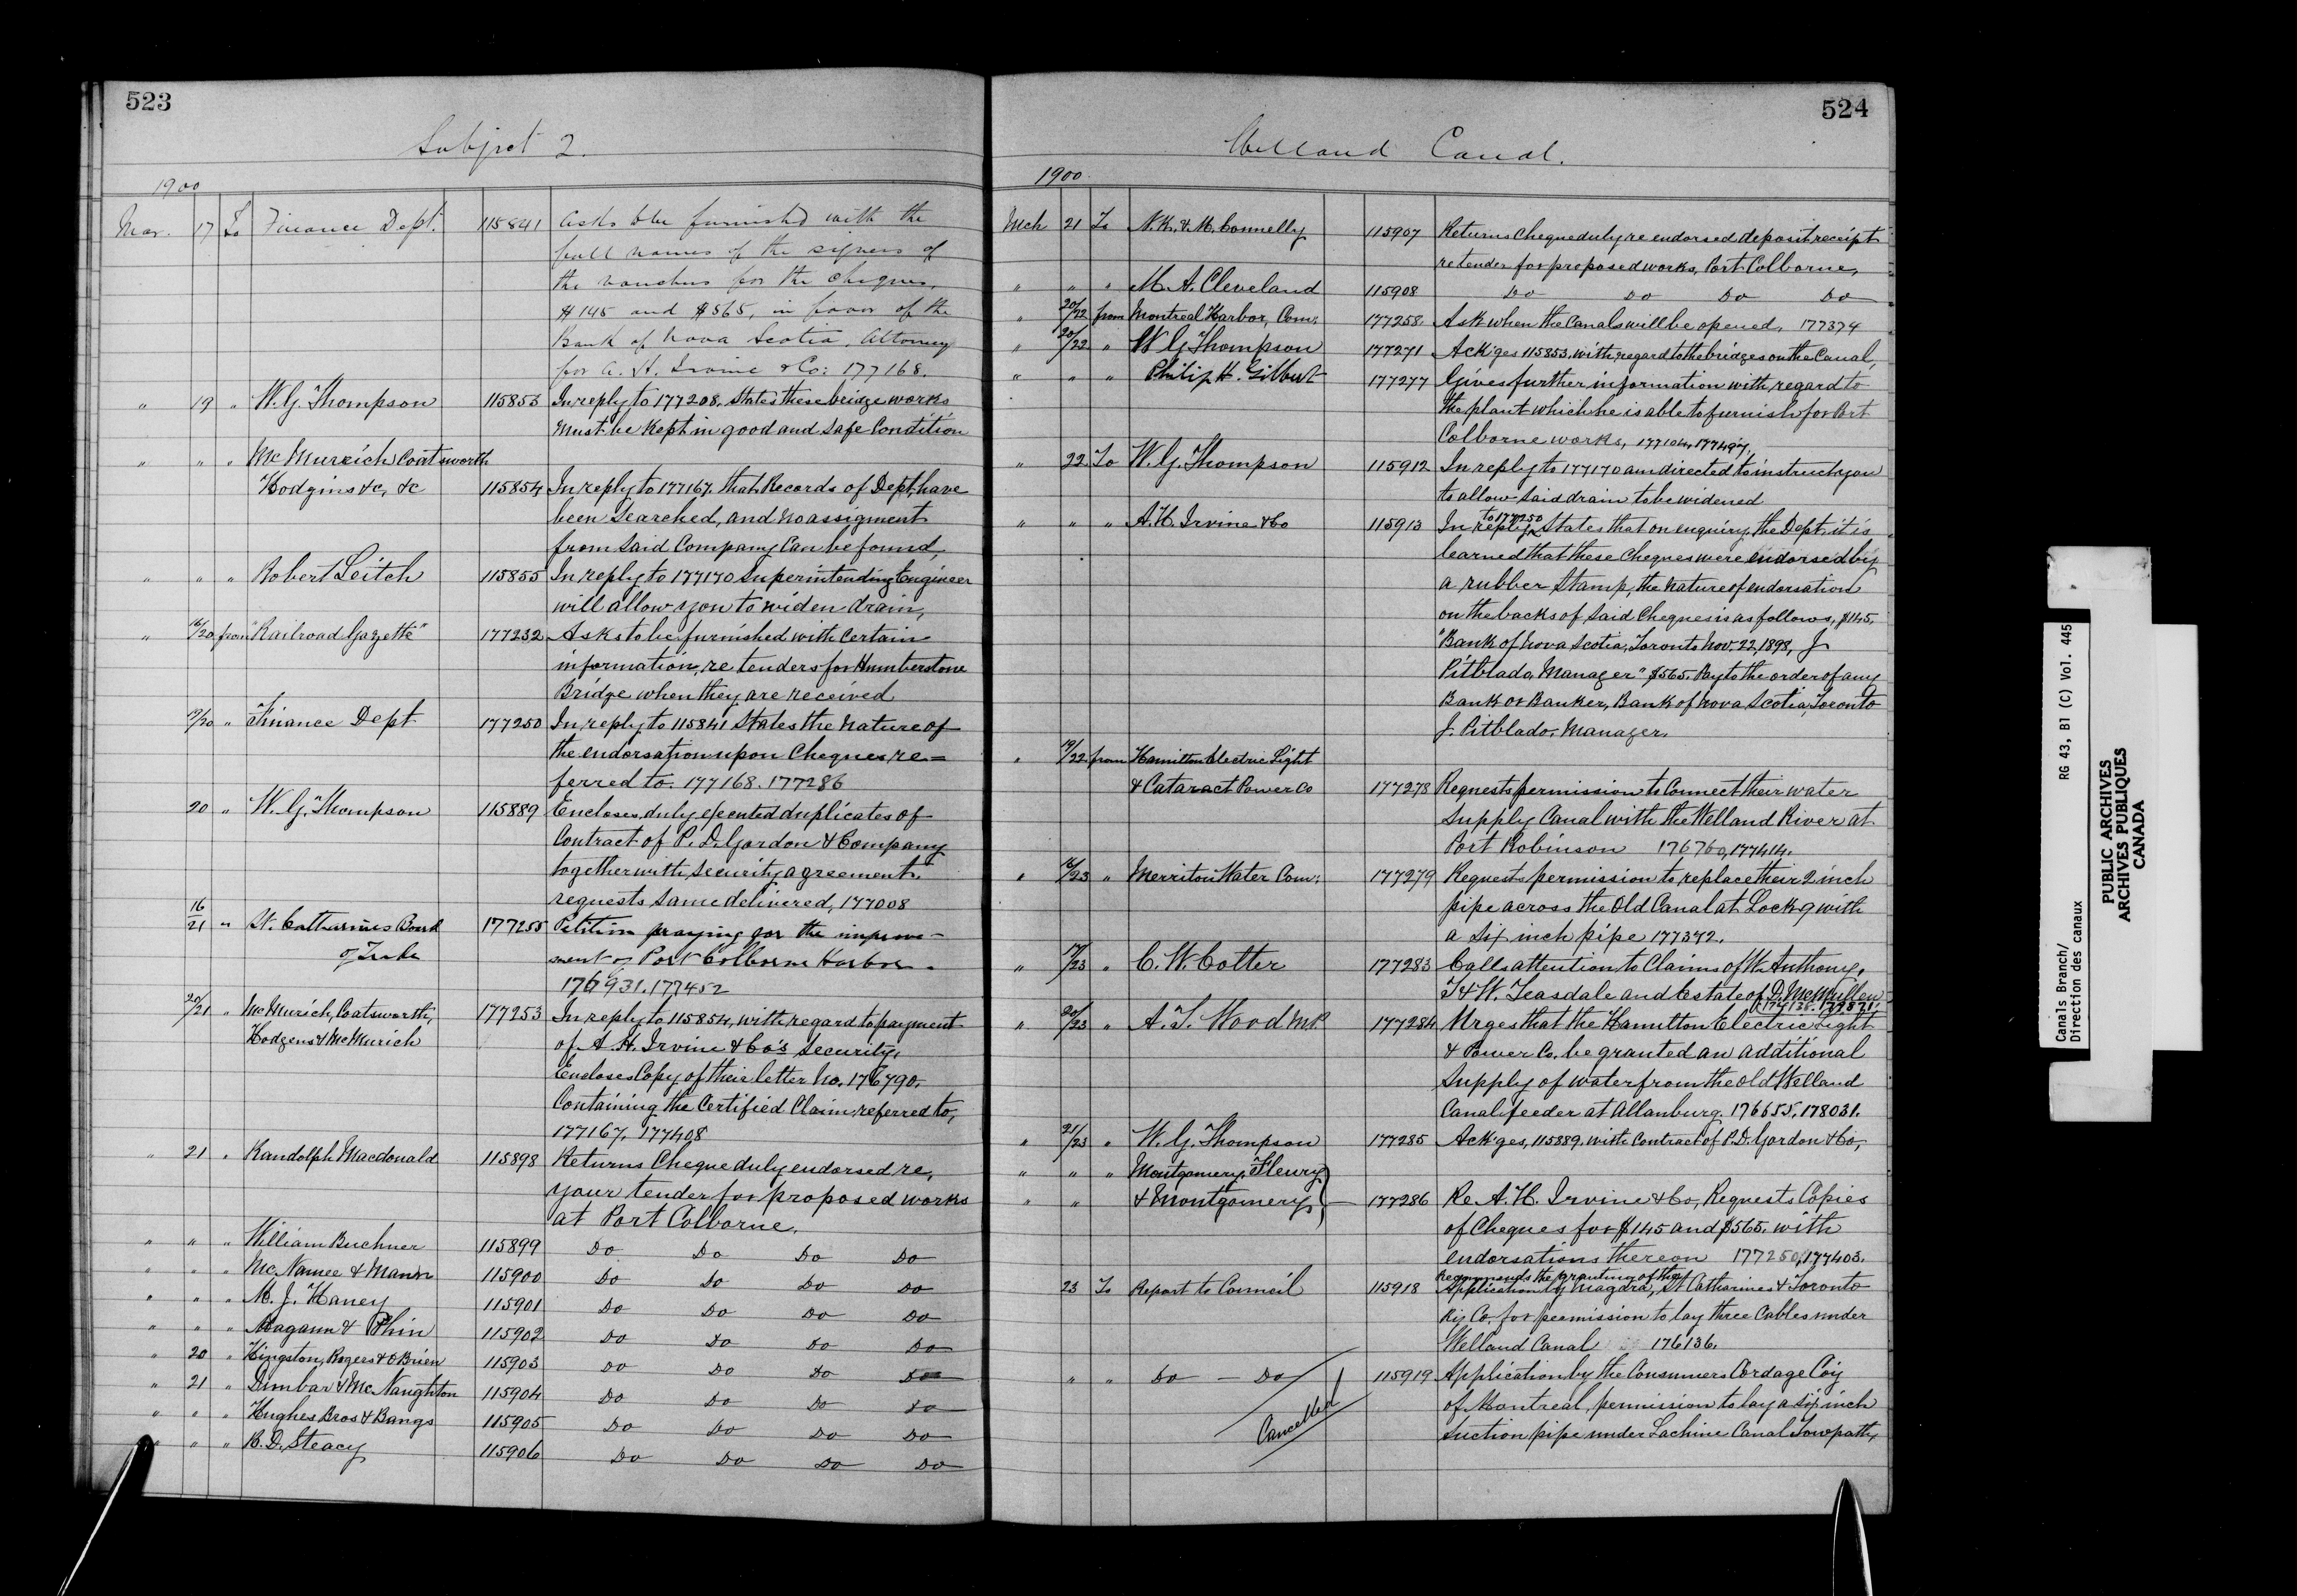 523
Subject 2.
1900
Mar. 17 To Finance Dept. 115841 Asks to be furnished with the
full names of the signers of
the vouchers for the cheques,
$145 and $565, in favor of the
Bank of Nova Scotia, Attorney
for A. H. Irvine & Co: 177168.
" 19 " W. G. Thompson 115853 In reply to 177208, States these bridge works
must be kept in good and safe Condition
" " " McMurrich Coatsworth
Hodgins &c, &c 115854 In reply to 177167, that Records of Dept. have
been searched, and no assigment
from said Company Can be found,
" " " Robert Leitch 115855 In reply to 177170 Superintending Engineer
will allow you to widen drain,
" 16/20 from "Railroad Gazette" 177232 Asks to be furnished with Certain
information, re tenders for Humberstone
Bridge when they are received
19/20 " Finance Dept 177250 In reply to 115841 States the nature of
the endorsation upon Cheques re=
ferred to. 177168. 177286
20 " W. G. Thompson 115889 Encloses duly executed duplicates of
Contract of P. D. Gordon & Company
together with, security agreement.
requests same delivered, 177008
16/21 " St. Catharines Board 177255 Petition praying for the improve-
of Trade ment of Port Colborne Harbor.
176931. 177452
20/21 " McMurich, Coatsworth, 177253 In reply to 115854, with regard to payment
Hodgens & McMurich of A. H. Irvine & Co's security,
Encloses Copy of their letter No. 176790,
Containing the Certified Claim referred to,
177167. 177408
" 21 " Randolph Macdonald 115898 Returns Cheque duly endorsed re,
your tender for proposed works
at Port Colborne.
" " " William Buchner 115899 Do Do Do Do
" " " McNamee & Mann 115900 Do Do Do Do
" " " M. J. Haney 115901 Do Do Do Do
" " " Magann & Phin 115902 Do Do Do Do
" 20 " Kingston, Rogers & O'Brien 115903 Do Do Do Do
" 21 " Dunbar & McNaughton 115904 Do Do Do Do
" " " Hughes Bros & Bangs 115905 Do Do Do Do
" " " R. D. Steacy 115906 Do Do Do Do
524
Welland Canal.
1900
Mch 21 To N. K. & M. Connelly 115907 Returns Cheque duly re endorsed deposit receipt
re tender for proposed works, Port Colborne,
" " " M. A. Cleveland 115908 Do Do Do Do
" 20/22 from Montreal Harbor, Com: 177258. Ask when the Canals will be opened, 177374
" 20/22 " W G Thompson 177271 Ack'ges 115853, with regard to the bridges on the Canal,
" " " Philip H. Gilbert 177277 Gives further information with regard to
the plant which he is able to furnish for Port
Colborne works, 177104, 177497,
" 22 To W. G. Thompson 115912 In reply to 177170 am directed to instruct you
to allow said drain to be widened
" " " A. H. Irvine & Co 115913 In reply to 177250 States that on enquiry, the Dept, it is
learned that these Cheques were endorsed by
a rubber Stamp, the nature of endorsation
on the backs of said Cheques is as follows, $145,
"Bank of Nova Scotia, Toronto Nov. 22, 1898, J
Pitblado, Manager" $565. Pay to the order of any
Bank or Banker, Bank of Nova Scotia, Toronto
J. Pitblado, Manager.
" 19/22 from Hamilton Electric Light
& Cataract Power Co 177278 Requests permission to Connect their water
supply Canal with the Welland River at
Port Robinson 176760, 177414.
" 16/23 " Merriton Water Com: 177279 Requests permission to replace their 2 inch
pipe across the Old Canal at Lock 9 with
a six inch pipe 177372.
" 17/23 " C. W. Cotter 177283 Calls attention to Claims of W. Anthony,
T & W. Teasdale and Estate of D. McMullen
174138. 179871.
" 20/23 " A. T. Wood M.P. 177284 Urges that the Hamilton Electric Light
& Power Co, be granted an additional
supply of water from the old Welland
Canal feeder at Allanburg. 176655, 178031.
" 21/23 " W. G. Thompson 177285 Ack'ges, 115889, with Contract of P. D. Gordon & Co,
" " " Montgomery, Fleury
" " & Montgomery 177286 Re A. H. Irvine & Co, Requests Copies
of Cheques for $145 and $565. with
endorsations thereon 177250, 177403.
23 To Report to Council 115918 Recommends the granting of the
Application by Niagara, St Catharines & Toronto
Ry Co. for permission to lay three Cables under
Welland Canal 176136.
" " Do - Do 115919 Application by the Consumers Cordage Coy
Cancelled
of Montreal, permission to lay a six inch
suction pipe under Lachine Canal Towpath,
Canals Branch/ RG 43, B1 (C) Vol. 445
Direction des canaux
PUBLIC ARCHIVES
ARCHIVES PUBLIQUES
CANADA